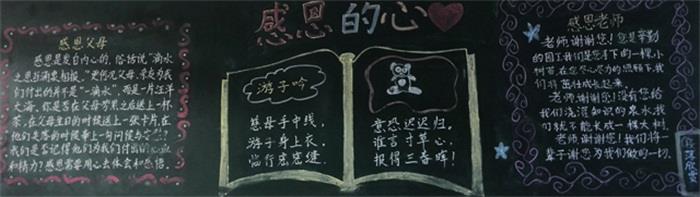 感恩的心
感恩父母
感恩是发自内心的。俗话说“滴水
之恩，涌泉相报。”更何况父母，亲友为我
们付出的并不是“一滴水”，而是一片汪洋
大海。你是否在父母劳累之后递上一杯
茶，在父母生日的时候送上一张卡片，在
他们失落的时候奉上一句问候与安慰？
我们是否记得他们为我们付出的心血
和精力？感恩需要用心去体会和感悟。
游子吟
慈母手中线，
游子身上衣，
临行密密缝，
意恐迟迟归。
谁言寸草心，
报得三春晖！
感恩老师
老师，谢谢您！您是辛勤
的园丁，我们是您手下的一棵小
树苗，在您尽心尽力的照顾下，我
们将茁壮成长起来。
老师，谢谢您！没有您给
我们浇灌知识的泉水，我
们就不能长成一棵大树。
老师，谢谢您！我们将一
辈子谢您为我们做的一切。